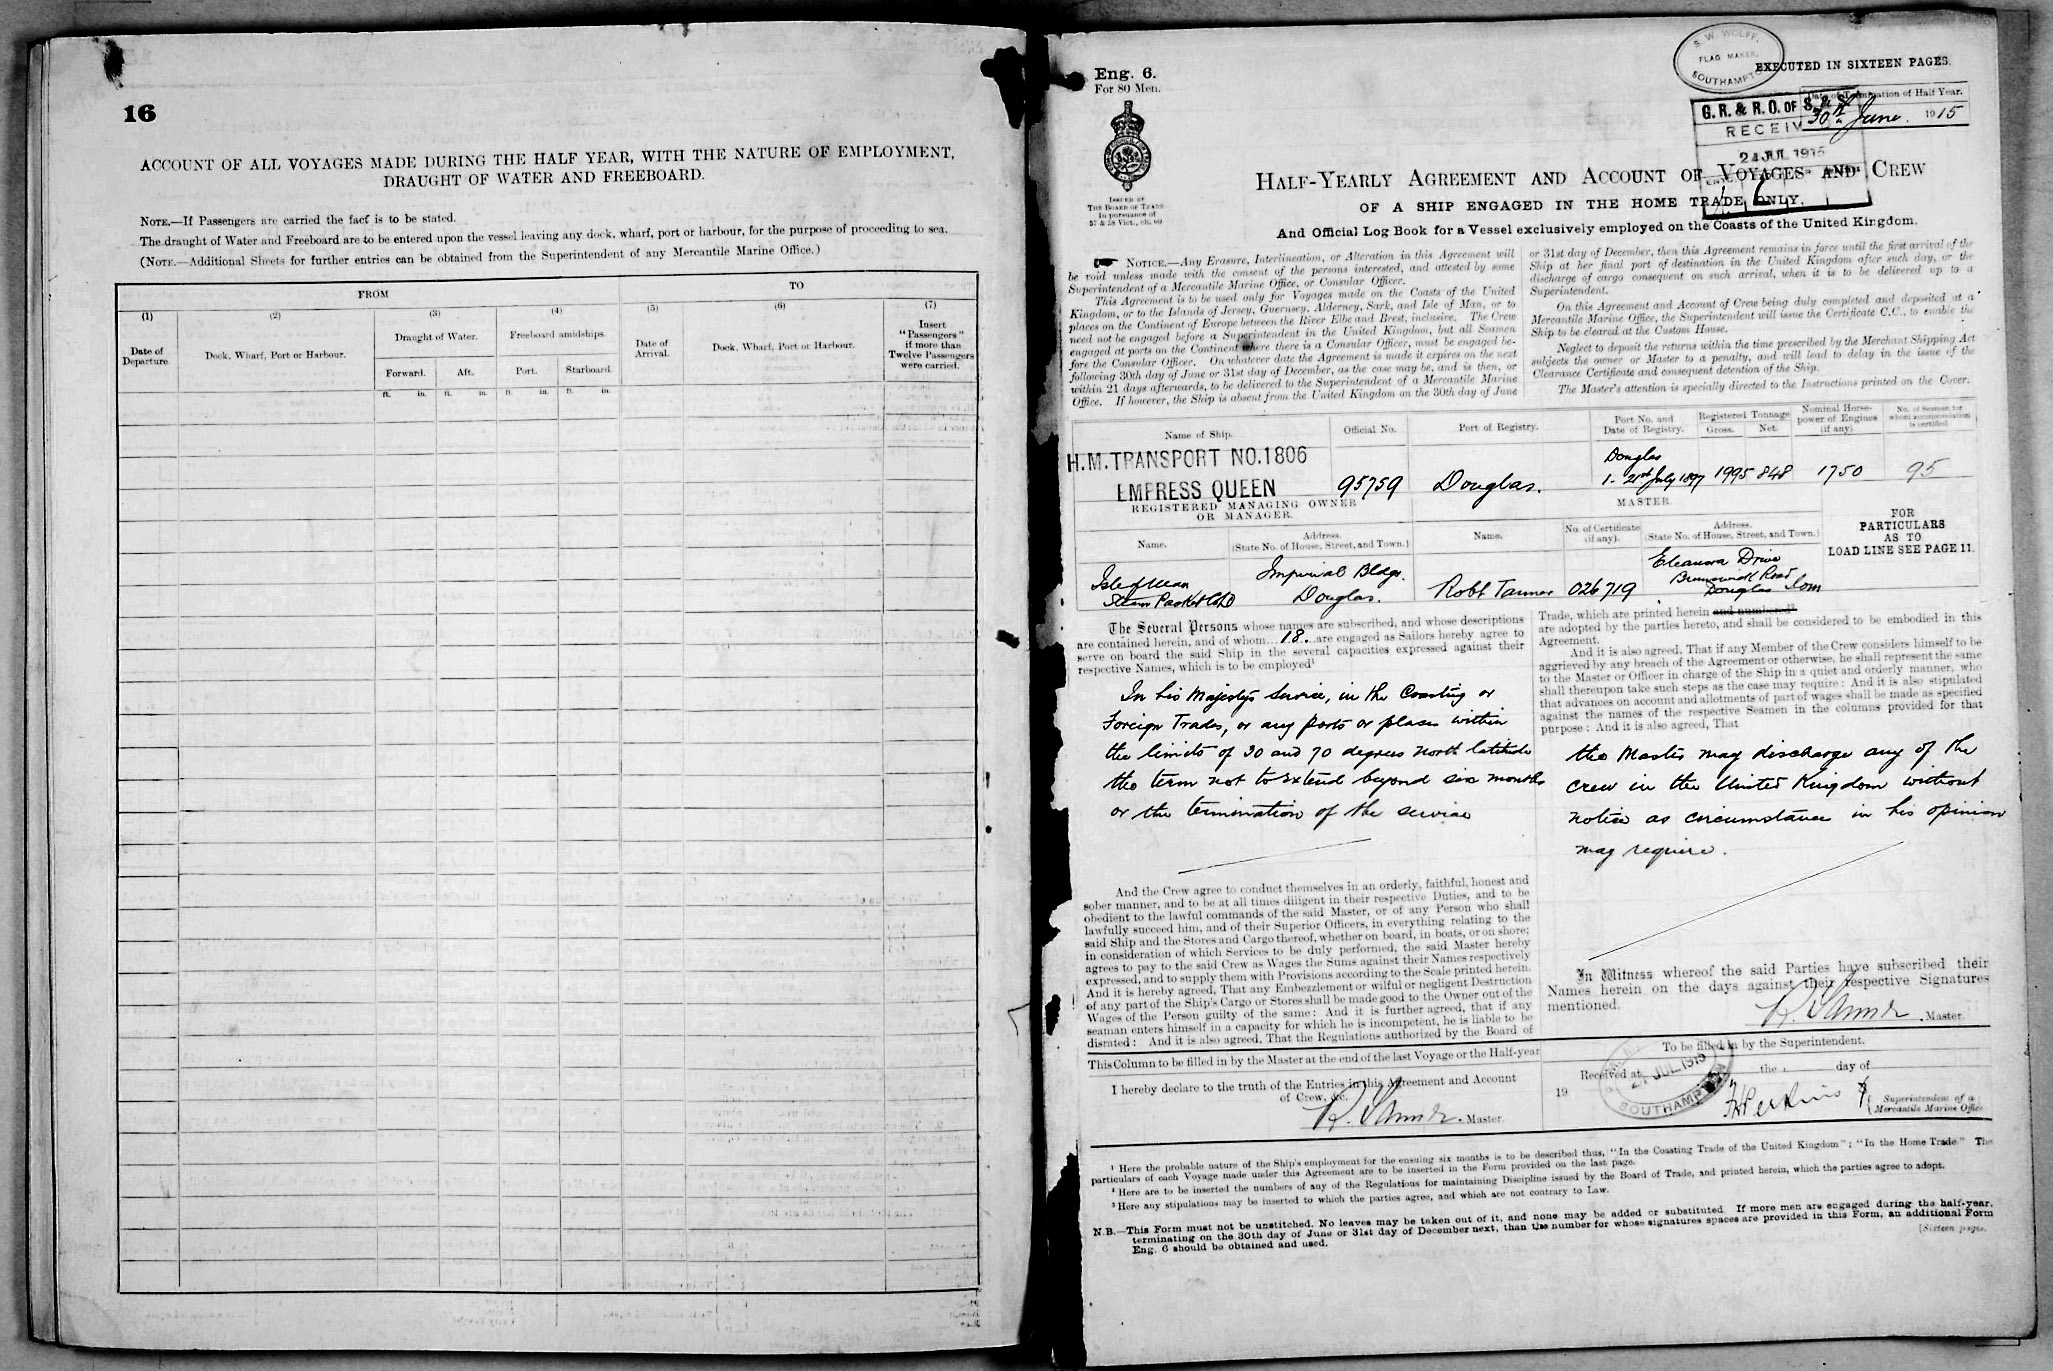 16
ACCOUNT OF ALL VOYAGES MADE DURING THE HALF YEAR, WITH THE NATURE OF EMPLOYMENT,
DRAUGHT OF WATER AND FREEBOARD.
NOTE.—If Passengers are carried the fact is to be stated.
The draught of Water and Freeboard are to be entered upon the vessel leaving any dock, wharf, port or harbour, for the purpose of proceeding to sea.
(NOTE.—Additional Sheets for further entries can be obtained from the Superintendent of any Mercantile Marine Office.)
FROM
TO
(1) (2) (3) (4) (5) (6) (7)
Date of Departure.
Dock, Wharf, Port or Harbour.
Draught of Water.
Freeboard amidships.
Date of Arrival.
Dock, Wharf, Port or Harbour.
Insert "Passengers" if more than Twelve Passengers were carried.
Forward. Aft. Port. Starboard.
ft. in. ft. in. ft. in. ft. in.
Eng. 6.
For 80 Men.
ISSUED BY
THE BOARD OF TRADE
In pursuance of
57 & 58 Vict., ch. 60
S. W. WOLFF,
FLAG MAKER,
SOUTHAMPTON
EXECUTED IN SIXTEEN PAGES.
Date of Termination of Half Year.
30th June. 1915
G. R. & R. O. OF S. & S.
RECEIV
24 JUL 1915
HALF-YEARLY AGREEMENT AND ACCOUNT OF VOYAGES AND CREW
OF A SHIP ENGAGED IN THE HOME TRADE ONLY,
And Official Log Book for a Vessel exclusively employed on the Coasts of the United Kingdom.
NOTICE.—Any Erasure, Interlineation, or Alteration in this Agreement will
be void unless made with the consent of the persons interested, and attested by some
Superintendent of a Mercantile Marine Office, or Consular Officer.
This Agreement is to be used only for Voyages made on the Coasts of the United
Kingdom, or to the Islands of Jersey, Guernsey, Alderney, Sark, and Isle of Man, or to
places on the Continent of Europe between the River Elbe and Brest, inclusive. The Crew
need not be engaged before a Superintendent in the United Kingdom, but all Seamen
engaged at ports on the Continent where there is a Consular Officer, must be engaged be-
fore the Consular Officer. On whatever date the Agreement is made it expires on the next
following 30th day of June or 31st day of December, as the case may be, and is then, or
within 21 days afterwards, to be delivered to the Superintendent of a Mercantile Marine
Office. If however, the Ship is absent from the United Kingdom on the 30th day of June
or 31st day of December, then this Agreement remains in force until the first arrival of the
Ship at her final port of destination in the United Kingdom after such day, or the
discharge of cargo consequent on such arrival, when it is to be delivered up to a
Superintendent.
On this Agreement and Account of Crew being duly completed and deposited at a
Mercantile Marine Office, the Superintendent will issue the Certificate C.C., to enable the
Ship to be cleared at the Custom House.
Neglect to deposit the returns within the time prescribed by the Merchant Shipping Act
subjects the owner or Master to a penalty, and will lead to delay in the issue of the
Clearance Certificate and consequent detention of the Ship.
The Master's attention is specially directed to the Instructions printed on the Cover.
Name of Ship.
Official No.
Port of Registry.
Port No. and Date of Registry.
Registered Tonnage
Gross. Net.
Nominal Horse-power of Engines (if any).
No. of Seamen for whom accommodation is certified
H.M. TRANSPORT NO. 1806
EMPRESS QUEEN
95759
Douglas.
Douglas
1 - 21st July 1897
1995 848 1750 95
REGISTERED MANAGING OWNER
OR MANAGER.
MASTER.
Name.
Address.
(State No. of House, Street, and Town.)
Name.
No. of Certificate (if any).
Address.
(State No. of House, Street, and Town.)
FOR
PARTICULARS
AS TO
LOAD LINE SEE PAGE 11.
Isle of Man
Steam Packet Co Ld
Imperial Bldgs.
Douglas.
Robt Tanner
026719
Eleanora Drive
Brunswick Road
Douglas Iom
The Several Persons whose names are subscribed, and whose descriptions
are contained herein, and of whom 18. are engaged as Sailors hereby agree to
serve on board the said Ship in the several capacities expressed against their
respective Names, which is to be employed¹
In his Majestys Service, in the Coasting or
Foreign Trades, or any ports or places within
the limits of 30 and 70 degrees north latitude
the term not to extend beyond six months
or the termination of the service
And the Crew agree to conduct themselves in an orderly, faithful, honest and
sober manner, and to be at all times diligent in their respective Duties, and to be
obedient to the lawful commands of the said Master, or of any Person who shall
lawfully succeed him, and of their Superior Officers, in everything relating to the
said Ship and the Stores and Cargo thereof, whether on board, in boats, or on shore;
in consideration of which Services to be duly performed, the said Master hereby
agrees to pay to the said Crew as Wages the Sums against their Names respectively
expressed, and to supply them with Provisions according to the Scale printed herein.
And it is hereby agreed, That any Embezzlement or wilful or negligent Destruction
of any part of the Ship's Cargo or Stores shall be made good to the Owner out of the
Wages of the Person guilty of the same: And it is further agreed, that if any
seaman enters himself in a capacity for which he is incompetent, he is liable to be
disrated: And it is also agreed, That the Regulations authorized by the Board of
Trade, which are printed herein and numbered²
are adopted by the parties hereto, and shall be considered to be embodied in this
Agreement.
And it is also agreed, That if any Member of the Crew considers himself to be
aggrieved by any breach of the Agreement or otherwise, he shall represent the same
to the Master or Officer in charge of the Ship in a quiet and orderly manner, who
shall thereupon take such steps as the case may require: And it is also stipulated
that advances on account and allotments of part of wages shall be made as specified
against the names of the respective Seamen in the columns provided for that
purpose: And it is also agreed, That
the Master may discharge any of the
crew in the United Kingdom without
notice as circumstances in his opinion
may require.
In Witness whereof the said Parties have subscribed their
Names herein on the days against their respective Signatures
mentioned.
R. Tanner, Master.
This Column to be filled in by the Master at the end of the last Voyage or the Half-year
I hereby declare to the truth of the Entries in this Agreement and Account
of Crew, &c.
R. Tanner. Master.
To be filled in by the Superintendent.
Received at the day of
19
21 JUL. 1915
SOUTHAMPTON
Perkins
Superintendent of a
Mercantile Marine Office
¹ Here the probable nature of the Ship's employment for the ensuing six months is to be described thus, "In the Coasting Trade of the United Kingdom"; "In the Home Trade." The
particulars of each Voyage made under this Agreement are to be inserted in the Form provided on the last page.
² Here are to be inserted the numbers of any of the Regulations for maintaining Discipline issued by the Board of Trade, and printed herein, which the parties agree to adopt.
³ Here any stipulations may be inserted to which the parties agree, and which are not contrary to Law.
N.B.—This Form must not be unstitched. No leaves may be taken out of it, and none may be added or substituted. If more men are engaged during the half-year,
terminating on the 30th day of June or 31st day of December next, than the number for whose signatures spaces are provided in this Form, an additional Form
Eng. 6 should be obtained and used.
[Sixteen pages.